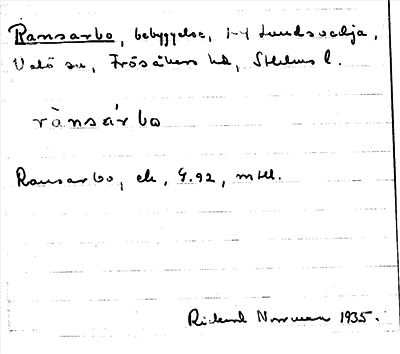 Ransarbo, bebyggelse, 1/4 Lundsvedja,
Valö sn, Frösåkers hd, Sthlms l.
rànsárbo
Ransarbo, ek, G.92, mtl.
Rickard Norrman 1935.